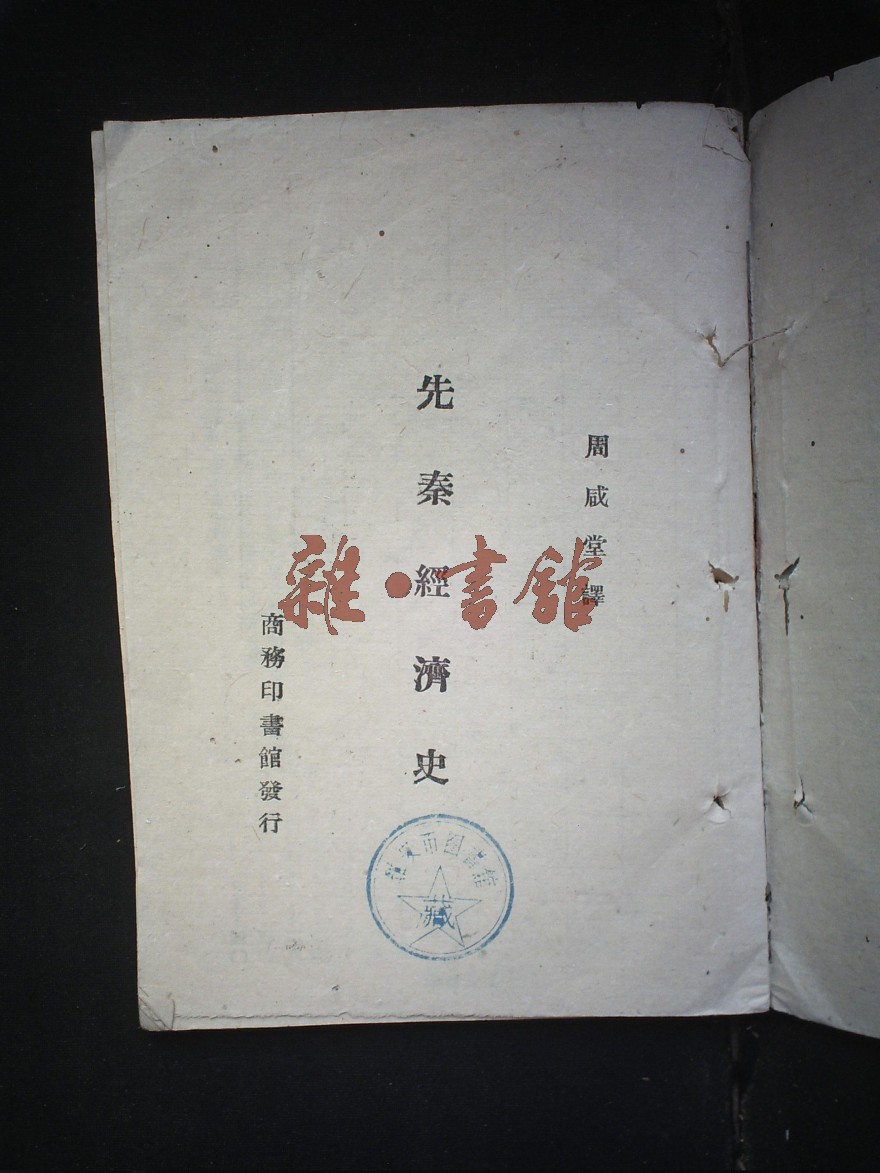 周咸堂譯
先秦經濟史
商務印書館發行
雜·書館
市图書館
藏